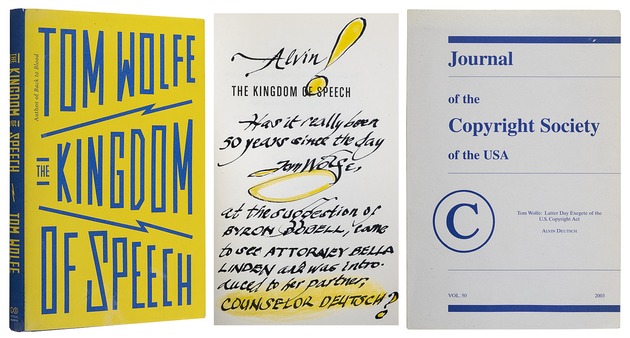 THE
KINGDOM
OF
SPEECH
TOM WOLFE
TOM WOLFE
Author of Back to Blood
THE
KINGDOM
OF SPEECH
Alvin!
THE KINGDOM OF SPEECH
Has it really been
50 years since the day
Tom Wolfe,
at the suggestion of
BYRON DOBELL, came
to see ATTORNEY BELLA
LINDEN and was intro-
duced to her partner,
COUNSELOR DEUTSCH?
Journal
of the
Copyright Society
of the USA
C
Tom Wolfe: Latter Day Exegete of the
U.S. Copyright Act
ALVIN DEUTSCH
VOL. 50
2003